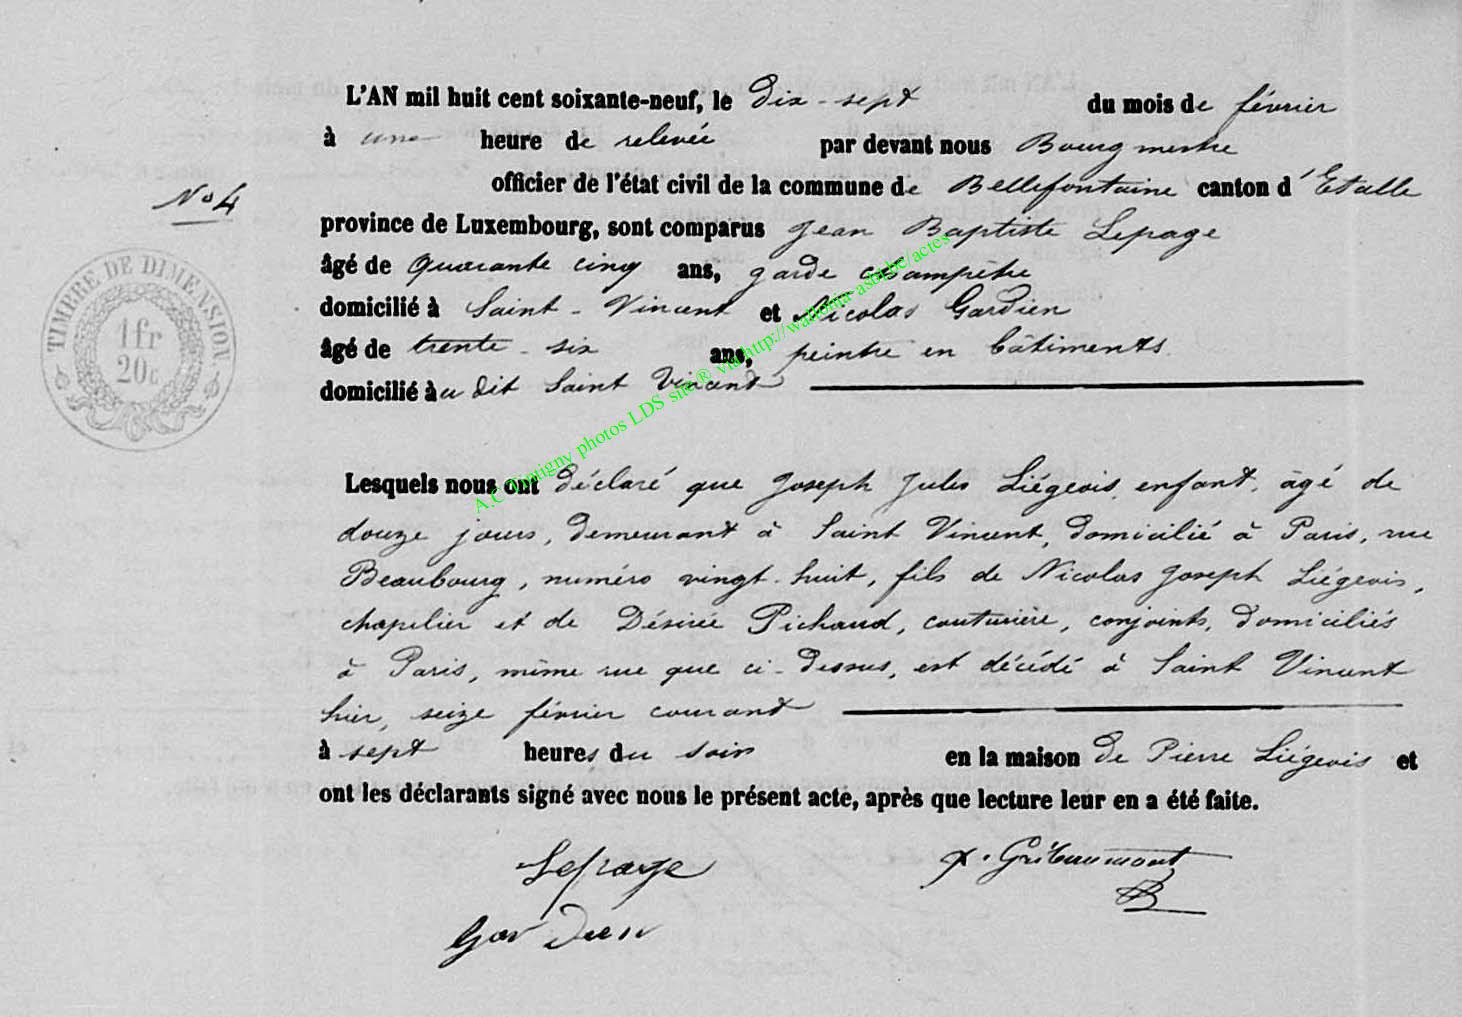 L'AN mil huit cent soixante-neuf, le Dix-sept du mois de février
à une heure de relevée par devant nous Bourgmestre
officier de l'état civil de la commune de Bellefontaine canton d'Etalle
N° 4
province de Luxembourg, sont comparus Jean Baptiste Lepage
âgé de Quarante cinq ans, garde champêtre
domicilié à Saint-Vincent et Nicolas Gardien
âgé de trente-six ans, peintre en bâtiments
domicilié au dit Saint Vincent
TIMBRE DE DIMENSION
1 fr
20c
A.C Tintigny photos LDS site® via http://wallonia-asbl.be/actes
Lesquels nous ont déclaré que Joseph Jules Liégeois, enfant, âgé de
douze jours, demeurant à Saint Vincent, domicilié à Paris, rue
Beaubourg, numéro vingt-huit, fils de Nicolas Joseph Liégeois,
chapelier et de Désirée Pichaud, couturière, conjoints, domiciliés
à Paris, même rue que ci-dessus, est décédé à Saint Vincent
hier, seize février courant
à sept heures du soir en la maison de Pierre Liégeois et
ont les déclarants signé avec nous le présent acte, après que lecture leur en a été faite.
Lepage
Gribaumont
Gardien